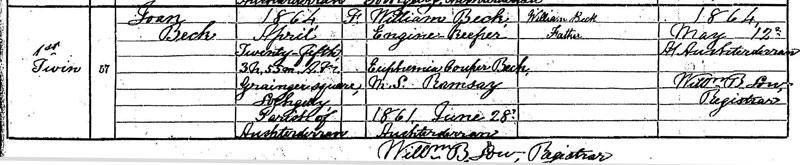 1st Twin
57
Joan Beck
1864
April
Twenty-fifth
3h. 55m. A.M.
Grainger Square,
Lochgelly
Parish of
Auchterderran
F.
William Beck
Engine-Keeper
Euphemia Couper Beck,
M.S. Ramsay
1861, June 28th
Auchterderran
William Beck
Father
1864,
May 12th
At Auchterderran
Willm B. Low,
Registrar
Willm B. Low, Registrar